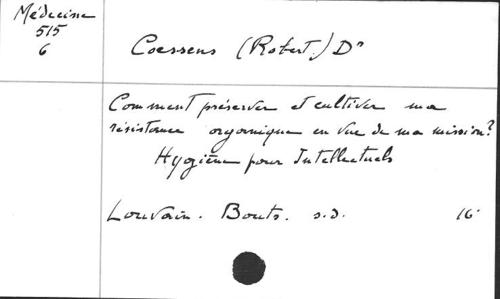 Médecine
515
6
Coessens (Robert.) Dr
Comment préserver et cultiver ma
résistance organique en vue de ma mission?
Hygiène pour Intellectuels
Louvain. Bouts. s.d. 16°